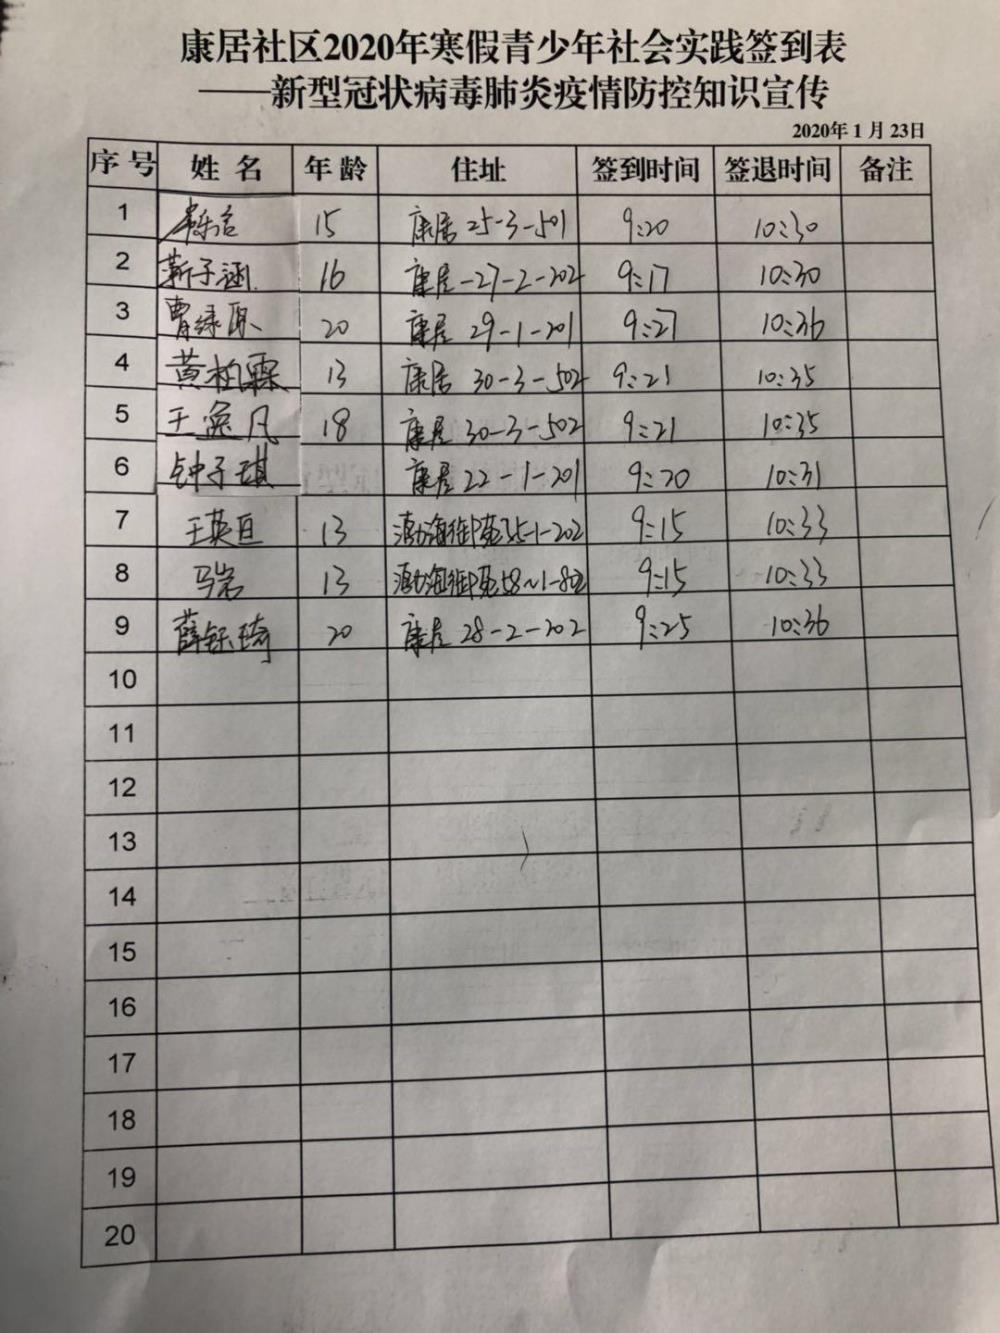 康居社区2020年寒假青少年社会实践签到表
——新型冠状病毒肺炎疫情防控知识宣传
2020年1月23日
序号 姓名 年龄 住址 签到时间 签退时间 备注
1 15 康居 25-3-501 9:20 10:30
2 靳子涵 16 康居-27-2-202 9:17 10:30
3 曹绿原 20 康居 29-1-201 9:27 10:36
4 黄柏霖 13 康居 30-3-502 9:21 10:35
5 王逸凡 18 康居 30-3-502 9:21 10:35
6 钟子琪 康居 22-1-201 9:20 10:31
7 王英亘 13 渤海御苑35-1-202 9:15 10:33
8 马岩 13 渤海御苑58~1-802 9:15 10:33
9 薛钰琦 20 康居 28-2-202 9:25 10:36
10
11
12
13
14
15
16
17
18
19
20